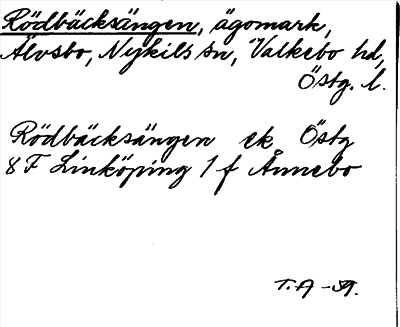 Rödbäcksängen, ägomark,
Älvsbo, Nykils sn, Valkebo hd,
Östg. l.
Rödbäcksängen ek Östg
8 F Linköping 1 f Ånnebo
T.A -59.